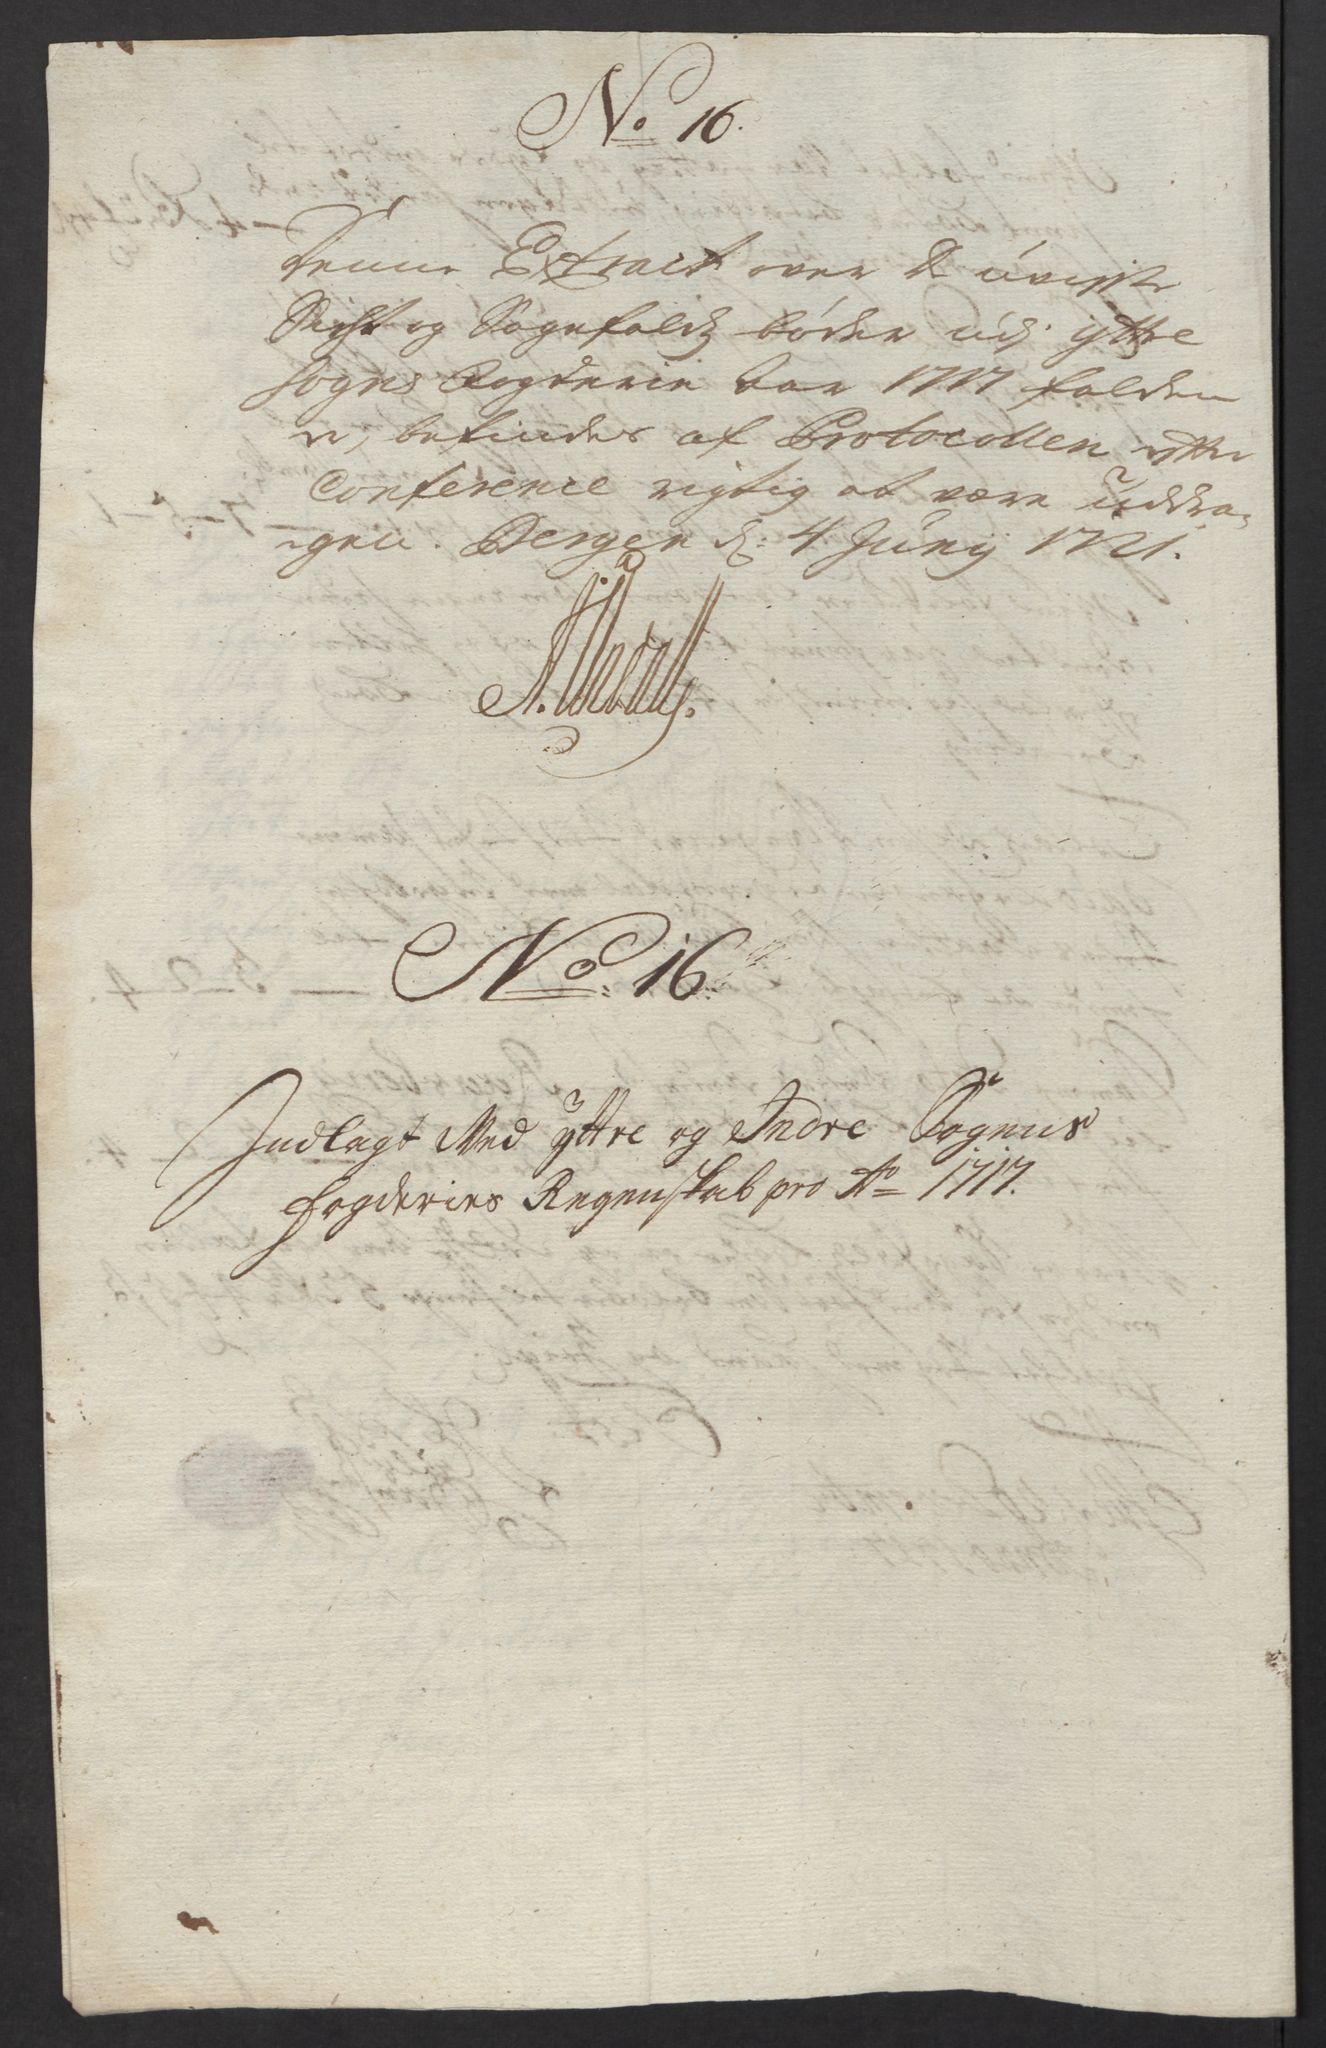 No 16.
Denne Extract over de uvisse
Sigt og Sagefalds bøder udj yttre
Sogns fogderie for 1717 falden
er, befindes af Protocollen efter
Conference rigtig at være uddra-
gen. Bergen d: 4 Junij 1721.
No: 16
Indlagt Med Yttre og Indre Sogens
fogderies Regenskab pro Ao 1717.